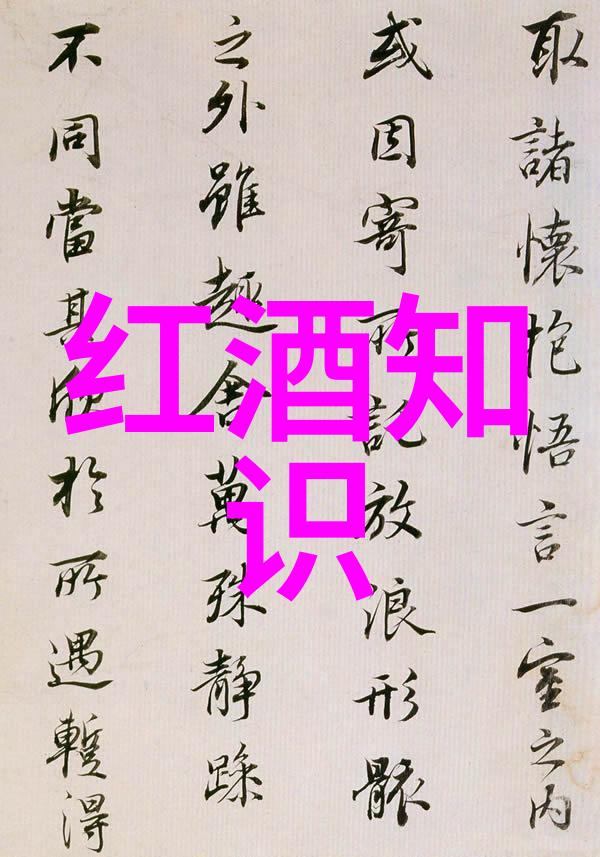 取諸懷抱悟言一室之内
或因寄所託放浪形骸
之外雖趣舍萬殊静躁
不同當其欣於所遇暫得
红酒知
识